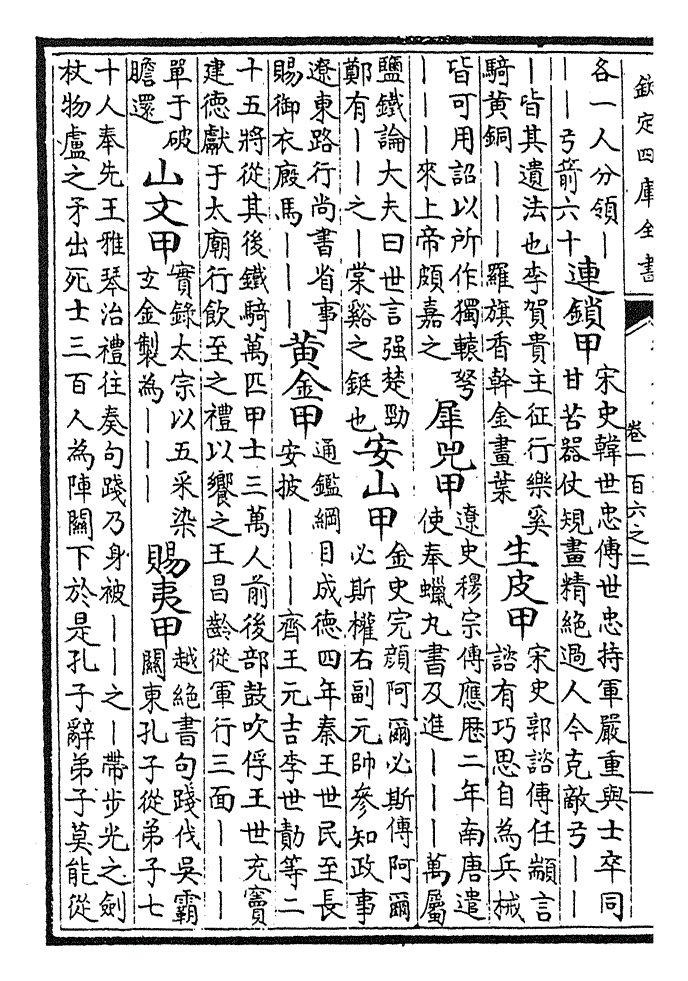 欽定四庫全書
卷一百六之二
各一人分領丨
丨丨弓箭六十
連鎖甲
宋史韓世忠傳世忠持軍嚴重與士卒同
甘苦器仗規畫精絕過人今克敵弓丨丨
丨皆其遺法也李賀貴主征行樂奚
騎黄銅丨丨丨羅旗香幹金畫葉
生皮甲
宋史郭諮傳任顓言
諮有巧思自為兵械
皆可用詔以所作獨轅弩
丨丨丨來上帝頗嘉之
犀兕甲
遼史穆宗傳應歴二年南唐遣
使奉蠟丸書及進丨丨丨萬屬
鹽鐵論大夫曰世言强楚勁
鄭有丨丨之丨棠谿之鋌也
安山甲
金史完顔阿爾必斯傳阿爾
必斯權右副元帥參知政事
遼東路行尚書省事
賜御衣廐馬丨丨丨
黄金甲
通鑑綱目成德四年秦王世民至長
安披丨丨丨齊王元吉李世勣等二
十五將從其後鐵騎萬匹甲士三萬人前後部鼓吹俘王世充竇
建德獻于太廟行飲至之禮以饗之王昌齡從軍行三面丨丨丨
單于破
膽還
山文甲
實錄太宗以五采染
玄金製為丨丨丨
賜夷甲
越絶書句踐伐吳霸
關東孔子從弟子七
十人奉先王雅琴治禮往奏句踐乃身被丨丨之丨帶步光之劍
杖物盧之矛出死士三百人為陣關下於是孔子辭弟子莫能從